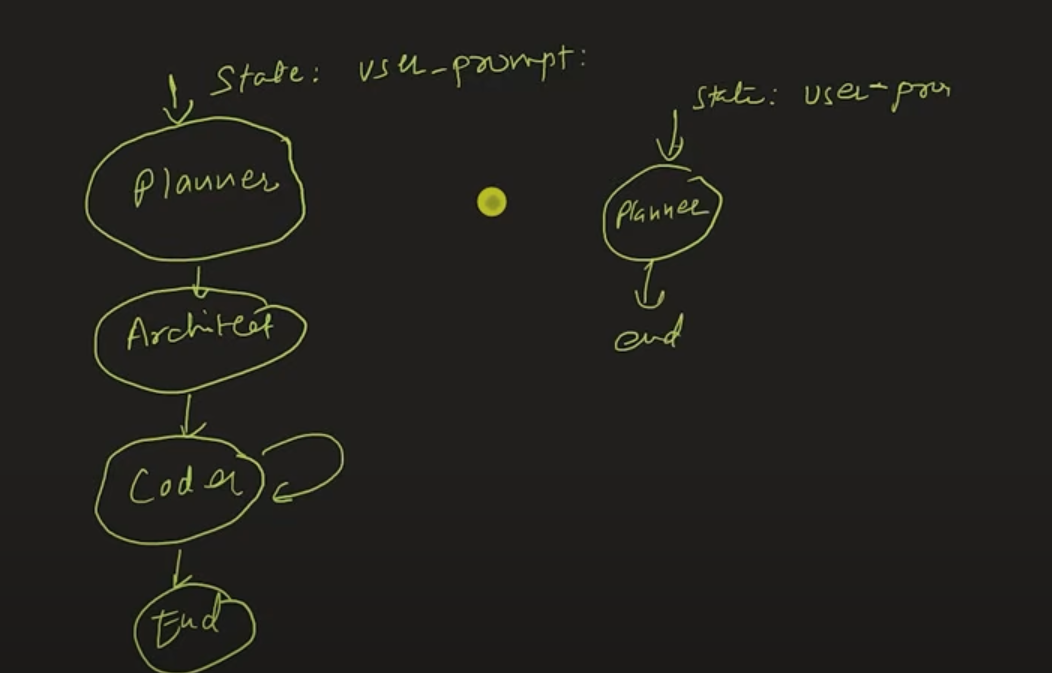 State: user_prompt:
Planner
Architect
Coder
End
State: user-prom
Planner
end